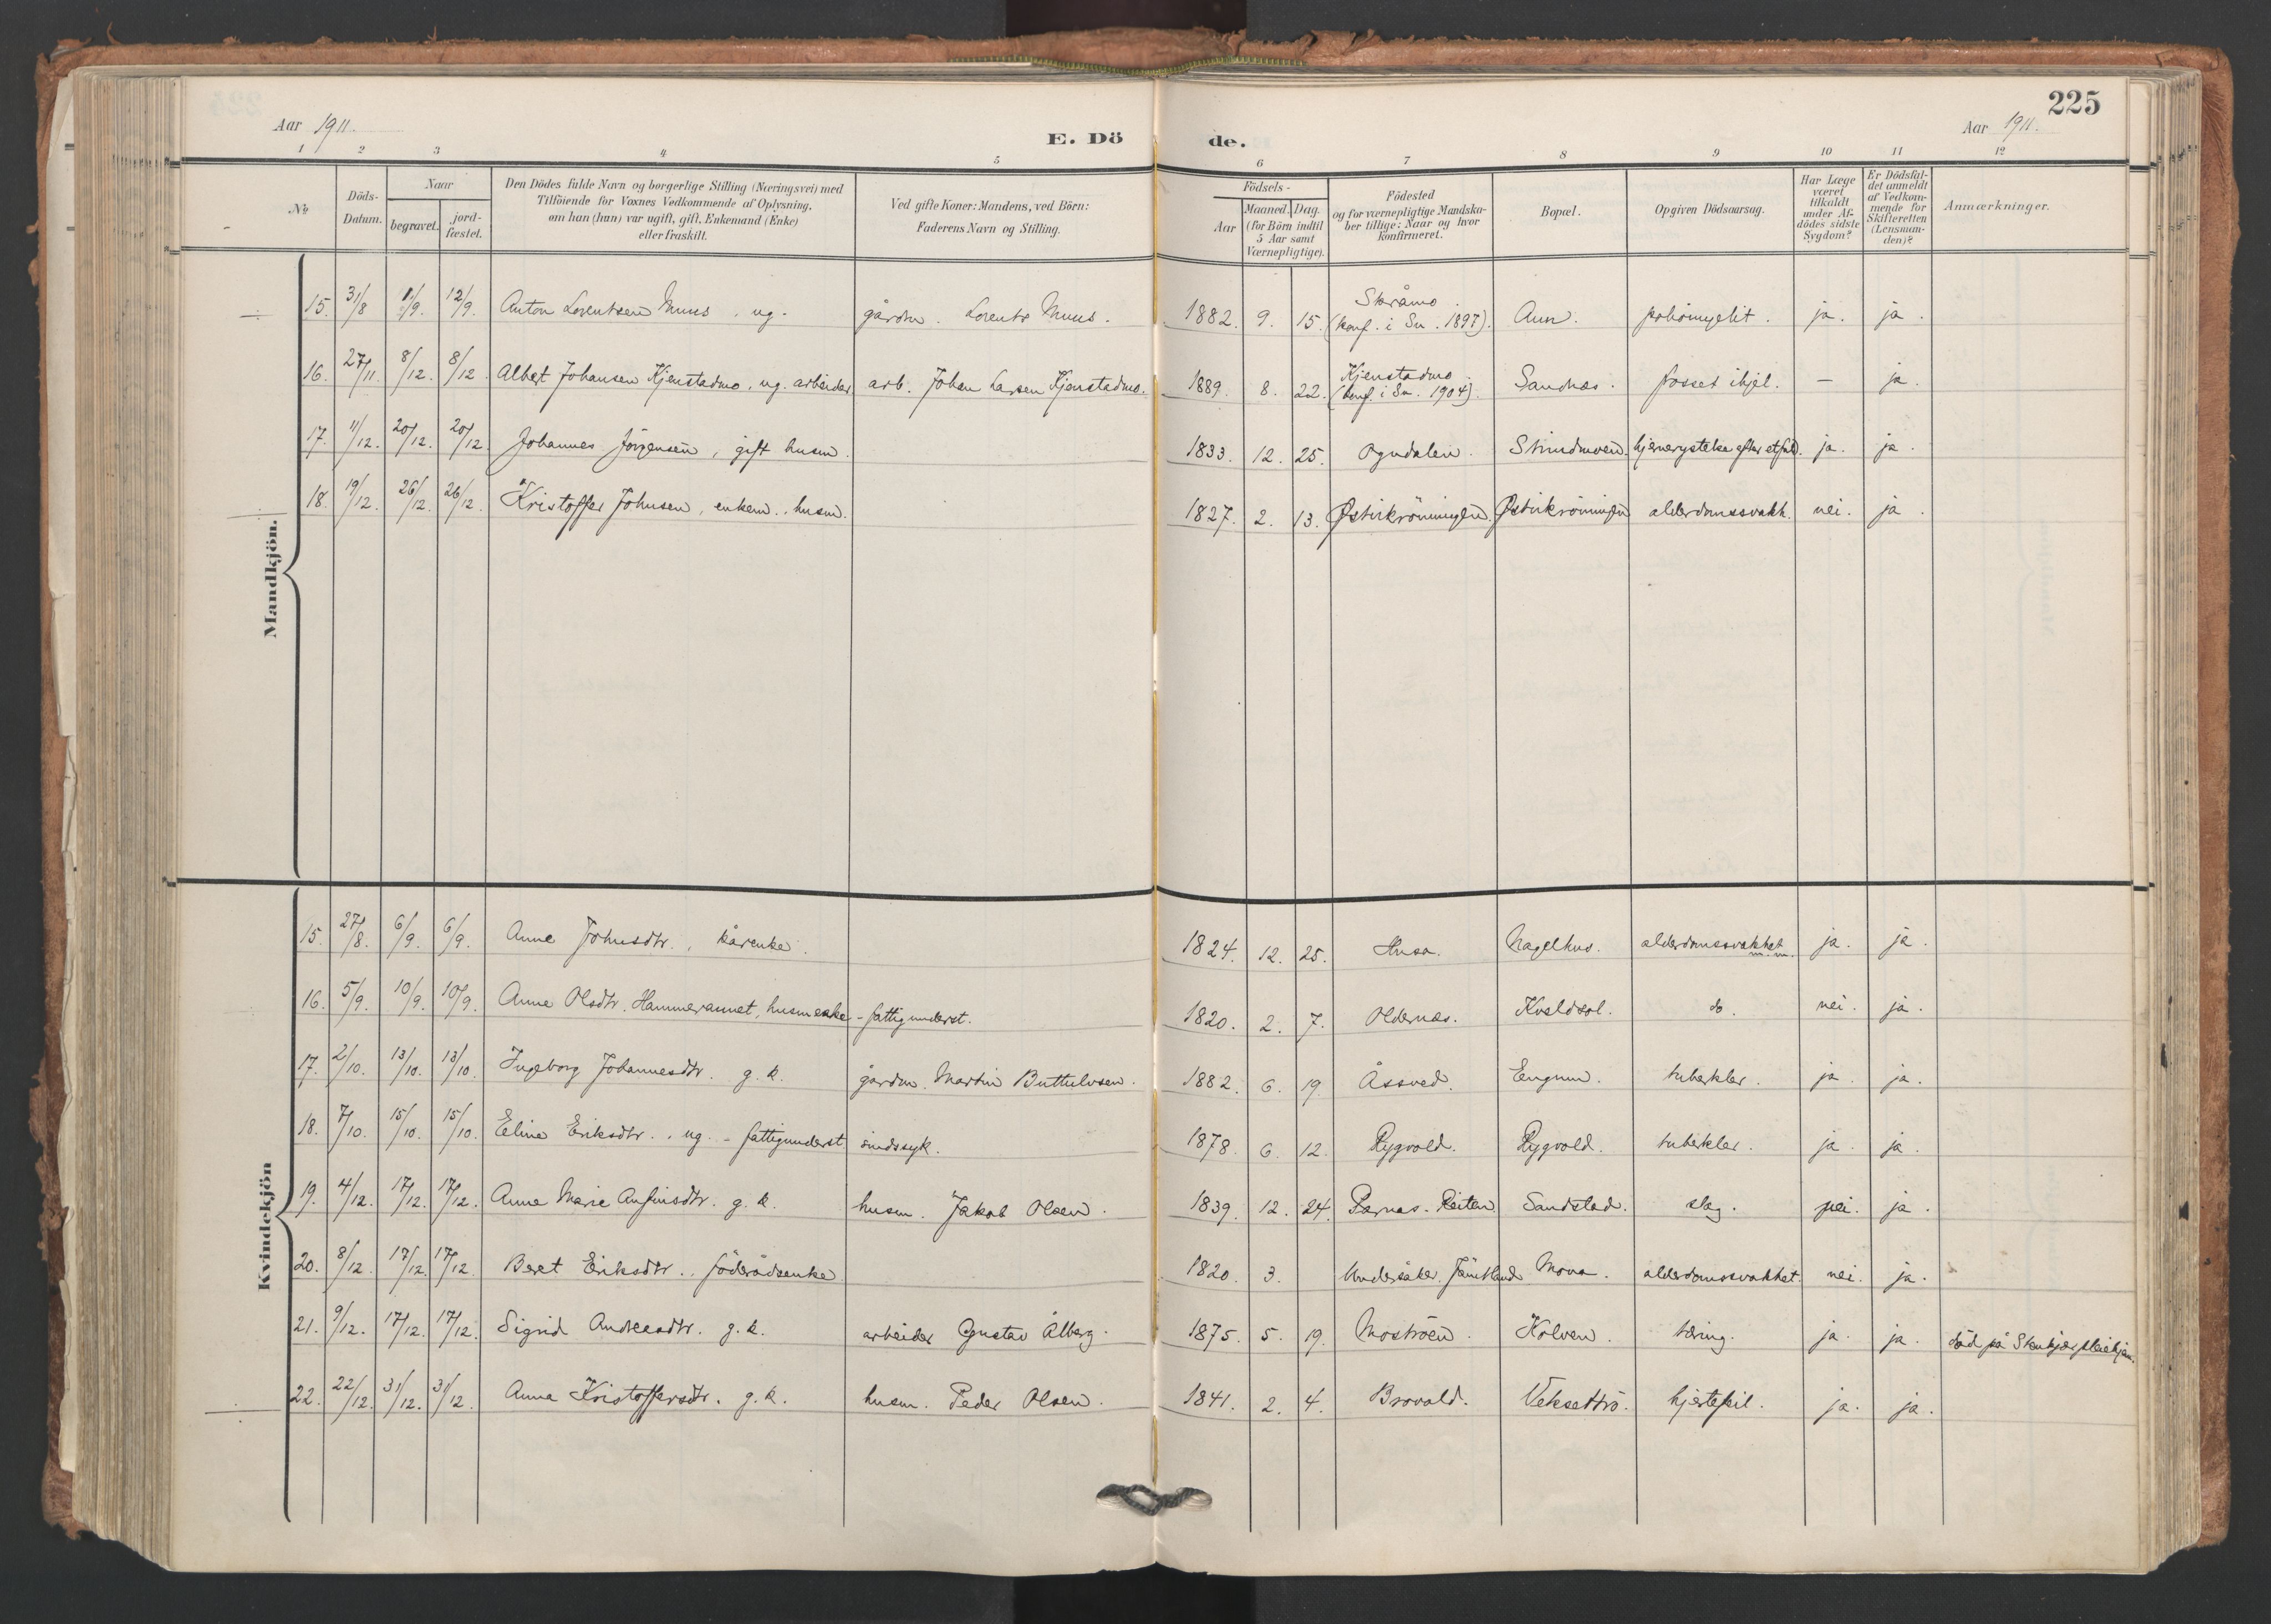 225
Aar 1911.
E. Döde.
Aar 1911.
1 2 3 4 5 6 7 8 9 10 11 12
No
Döds-Datum.
Naar
begravet.
jord-fæstet.
Den Dödes fulde Navn og borgerlige Stilling (Næringsvei) med
Tilföiende for Voxnes Vedkommende af Oplysning,
om han (hun) var ugift, gift, Enkemand (Enke)
eller fraskilt.
Ved gifte Koner: Mandens, ved Börn:
Faderens Navn og Stilling.
Födsels-
Aar
Maaned. Dag.
(for Börn indtil
5 Aar samt
Værnepligtige).
Födested
og for værnepligtige Mandska-
ber tillige: Naar og hvor
konfirmeret.
Bopæl.
Opgiven Dödsaarsag.
Har Læge
været
tilkaldt
under Af-
dödes sidste
Sygdom?
Er Dödsfal-
det anmeldt
af Vedkom-
mende for
Skifteretten
(Lensman-
den)?
Anmærkninger.
Mandkjön.
15. 31/8 1/9. 12/9. Anton Lorentsen Muus, ug. gårdm. Lorents Muus. 1882. 9. 15. Skråmo (konf. i Sn. 1897). Aun. poliomyelit. ja. ja.
16. 27/11. 8/12. 8/12. Albert Johansen Kjenstadmo, ug. arbeider arb. Johan Larsen Kjenstadmo. 1889. 8. 22. Kjenstadmo (konf. i Sn. 1904). Sandnæs. frosset ihjel. — ja.
17. 11/12. 20/12. 20/12 Johannes Jörgensen, gift husm. 1833. 12. 25. Ogndalen. hjernerystelse efter et fald. ja. ja.
18. 19/12. 26/12. 26/12. Kristoffer Johnsen, enkem., husm. 1827. 2. 13. Østvikröningen. Østvikröningen alderdomssvakh. nei. ja.
Kvindekjön
15. 27/8. 6/9. 6/9. Anne Johnsdtr., kårenke. 1824. 12. 25. Husa. Nagelhus. alderdomssvakhet m.m. ja. ja.
16. 5/9. 10/9. 10/9. Anne Olsdtr. husmenke - fattigunderst. 1820. 2. 7. Oldernæs. Kveldsol. do. nei. ja.
17. 2/10. 13/10. 13/10. Ingeborg Johannesdtr. g. k. gårdm. Martin Buttulvsen. 1882. 6. 19. Åssved. Engum. tuberkler. ja. ja.
18. 7/10. 15/10. 15/10. Eline Eriksdtr., ug. - fattigunderst sindssyk. 1878. 6. 12. Rygvold. Rygvold. tuberkler. ja. ja.
19. 4/12. 17/12. 17/12. Anne Marie Anfinsdtr. g. k. husm. Jakob Olsen. 1839. 12. 24. Parnas-Reiten Sandstad. slag. nei. ja.
20. 8/12. 17/12. 17/12. Beret Eriksdtr., föderådsenke 1820. 3. Undersåker. Jämtland Mona. alderdomssvakhet. nei. ja.
21. 9/12. 17/12. 17/12. Sigrid Andreasdtr. g. k. arbeider Gustav Ålberg. 1875. 5. 19. Moströen. Kolven. tæring. ja. ja. död på Stenkjær pleiehjem.
22. 22/12. 31/12. 31/12. Anna Kristoffersdtr. g. k. husm. Peder Olsen. 1841. 2. 4. Brovold. Veksettrö. hjertefeil. ja. ja.